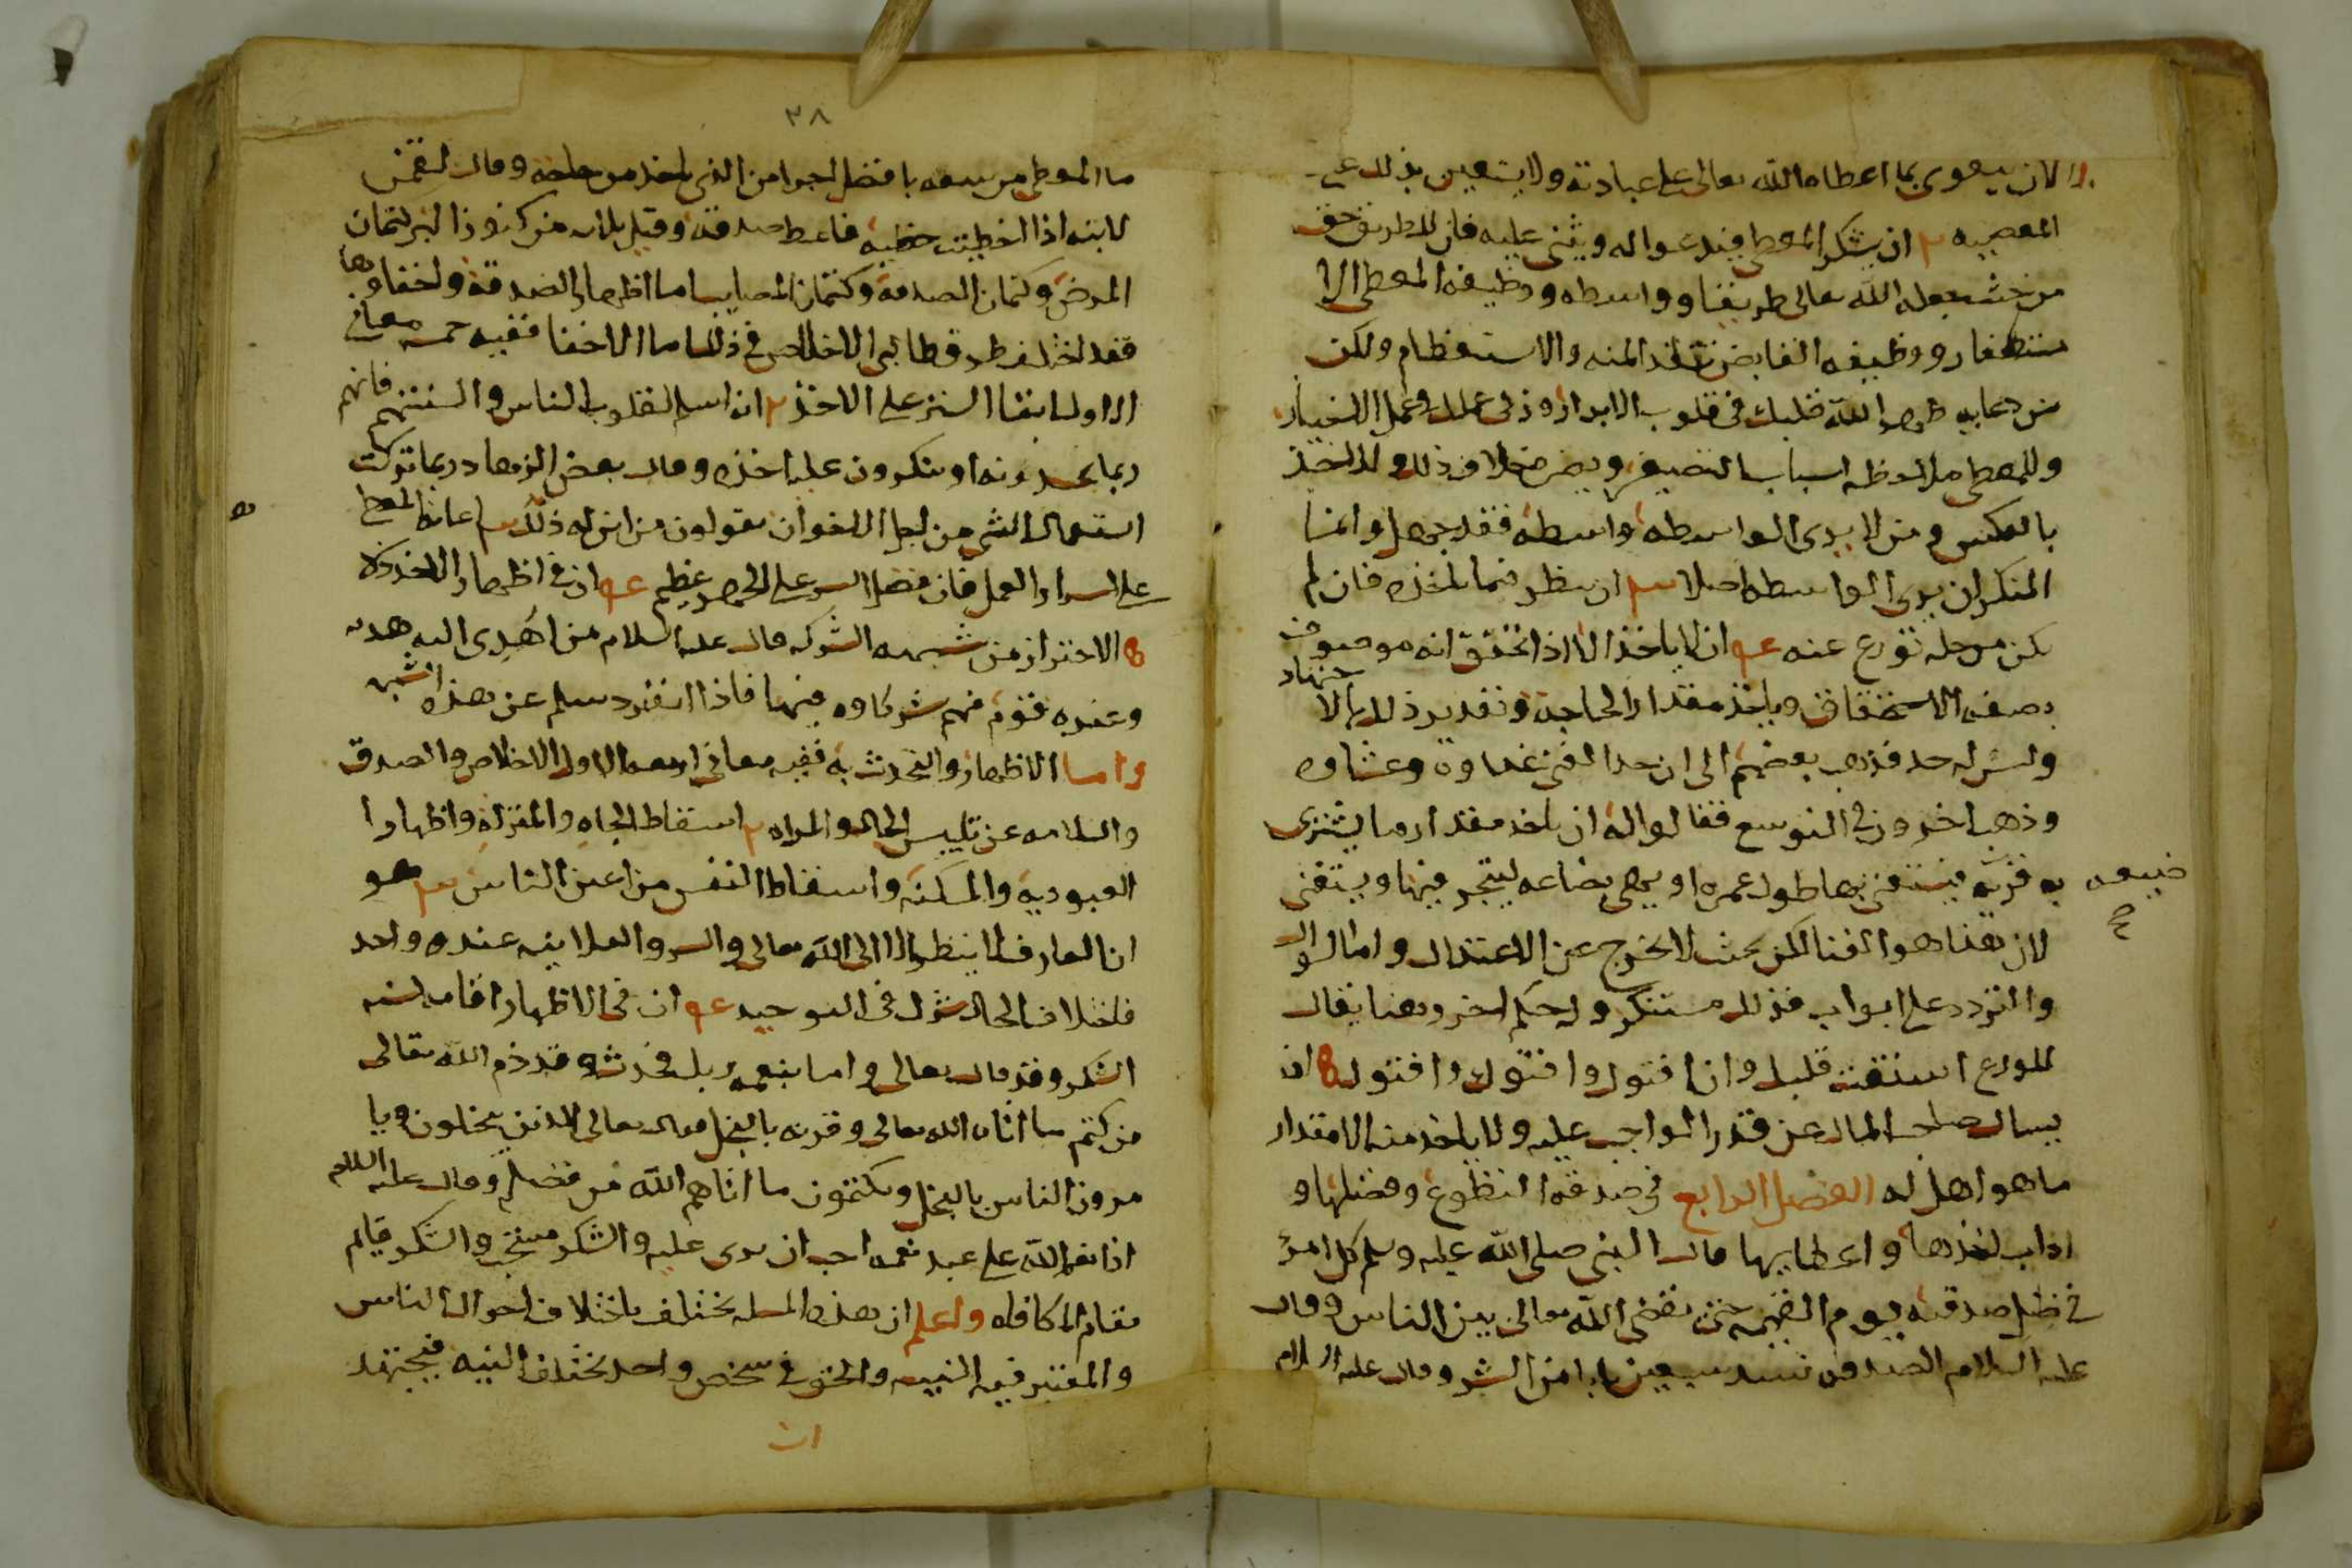 الا ان يتقوى بما اعطاه الله تعالى على عبادته ولا يستعين بذلك على
المعصيه ٢ ان يشكر المعطى فيدعوا له ويثنى عليه فان للطريق حق
من حيث جعله الله تعالى طريقا وواسطه ووظيفه المعطى الا
ستصغار ووظيفه القابض تقلد المنه والاستعظام وليكن
من دعايه طهر الله قلبك فى قلوب الابرار وزكى عملك فى عمل الاخيار
وللمعطى ملاحظه اسباب التصغير ويضر خلاف ذلك وللاخذ
بالعكس ومن لا يرى الواسطه واسطه فقد جهل وانما
المنكر ان يرى الواسطه اصلا ٣ ان ينظر فيما ياخذه فان لم
يكن من حله تورع عنه ٤ ان لا ياخذ الا اذا تحقق انه موصوف
بصفه الاستحقاق وياخذ مقدار الحاجة وتقدير ذلك بالاجتهاد
وليس له حد فذهب بعضهم الى ان حد الغنى غداوه وعشاوه
وذهب اخرون فى التوسع فقالوا له ان ياخذ مقدار ما يشترى
به قريه فيستغنى بها طول عمره او يهيى بضاعه ليتجر فيها ويستغنى
ضيعه
صح
لان هذا هو الغنا لكن بحيث لا يخرج عن الاعتدال واما السوال
والتردد على ابواب فذلك مستنكر وله حكم اخر وهنا يقال
للورع استفت قلبك وان افتوك وافتوك وافتوك ٥ ان
يسال صاحب المال عن قدر الواجب عليه ولا ياخذ منه الا مقدار
ما هو اهل له الفصل الرابع فى صدقه التطوع وفضلها و
اداب اخذها واعطايها قال النبى صلى الله عليه وسلم كل امرئ
فى ظل صدقته يوم القيمه حتى يقضى الله تعالى بين الناس وقال
عليه السلام الصدقه تسد سبعين بابا من الشر وقال عليه السلام
٣٨
ما المعطى من سعه بافضل اجرا من الذى ياخذ من حاجه وقال لقمن
لابنه اذا اخطيت خطيه فاعط صدقه وقيل ثلاثه من كنوز البر كتمان
المرض وكتمان الصدقه وكتمان المصايب اما اظهار الصدقه واخفاوها
فقد اختلف طرق طالبى الاخلاص فى ذلك اما الاخفا ففيه خمسه معانى
الاول ابقا الستر على الاخذ ٢ انه اسلم لقلوب الناس والسنتهم فانهم
ربما يحسدونه او ينكرون عليه اخذه وقال بعض الزهاد ربما تركت
استعمال الشى من اجل الاخوان يقولون من اين له ذلك ٣ اعانه المعطى
على اسرار العمل فان فضل السر على الجهر عظيم ٤ ان فى اظهار الاخذ ذله
٥ الاحتراز من شبهه الشركه قال عليه السلام من اهدى اليه هديه
وعنده قوم فهم شركاوه فيها فاذا انفرد سلم عن هذه الشبهه
واما الاظهار والتحدث به ففيه معانى اربعه الاول الاخلاص والصدق
والسلامه عن تلبيس الحال والمراه ٢ اسقاط الجاه والمنزله واظهار ا
العبوديه والمسكنه واسقاط النفس من اعين الناس ٣ هو
ان العارف لا ينظر الا الى الله تعالى والسر والعلانيه عنده واحد
فاختلاف الحال شرك فى التوحيد ٤ ان فى الاظهار اقامه لسنه
الشكر وقد قال تعالى واما بنعمه ربك فحدث وقد ذم الله تعالى
من كتم ما اتاه الله تعالى وقرنه بالبخل فقال تعالى الذين يبخلون ويا
مرون الناس بالبخل ويكتمون ما اتاهم الله من فضله وقال عليه السلام
اذا انعم الله على عبد نعمه احب ان يرى عليه والشكر مستحب والشكر قايم
مقام المكافاه واعلم ان هذه المسله تختلف باختلاف احوال الناس
والمعتبر فيه النيه والحق فى شخص واحد تختلف النيه فيجتهد
ان